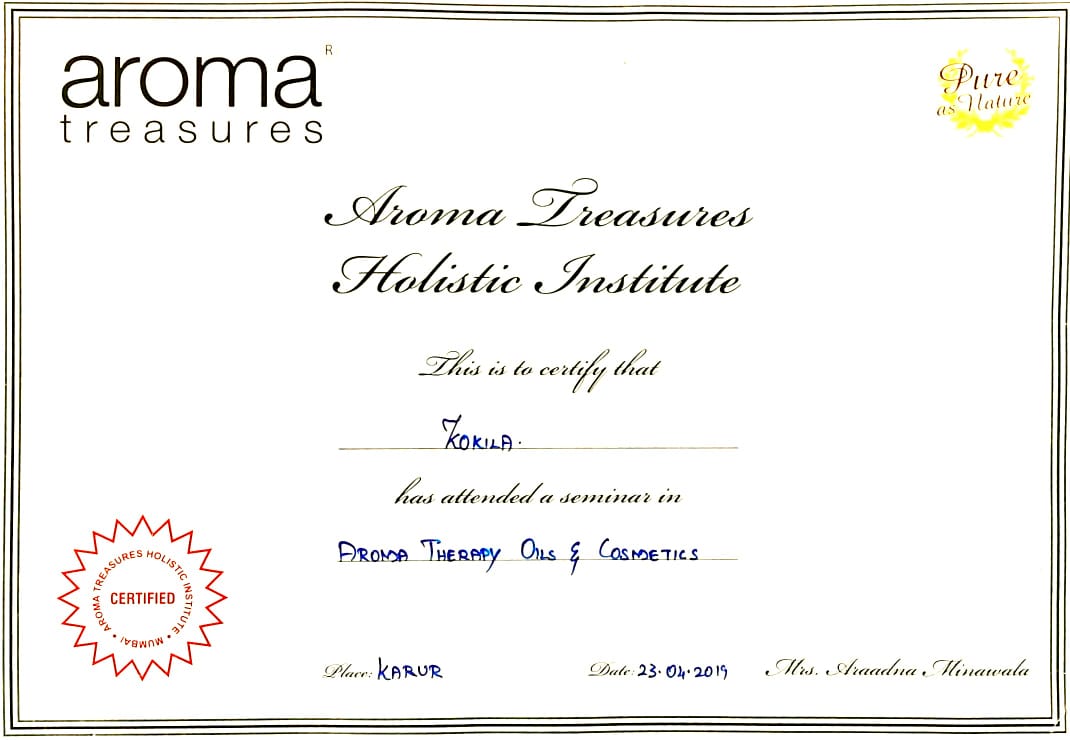 aroma®
treasures
Pure
as Nature
Aroma Treasures
Holistic Institute
This is to certify that
KOKILA.
has attended a seminar in
AROMA THERAPY OILS & COSMETICS
AROMA TREASURES HOLISTIC INSTITUTE • MUMBAI •
CERTIFIED
Place: KARUR
Date: 23.04.2019
Mrs. Araadna Minawala